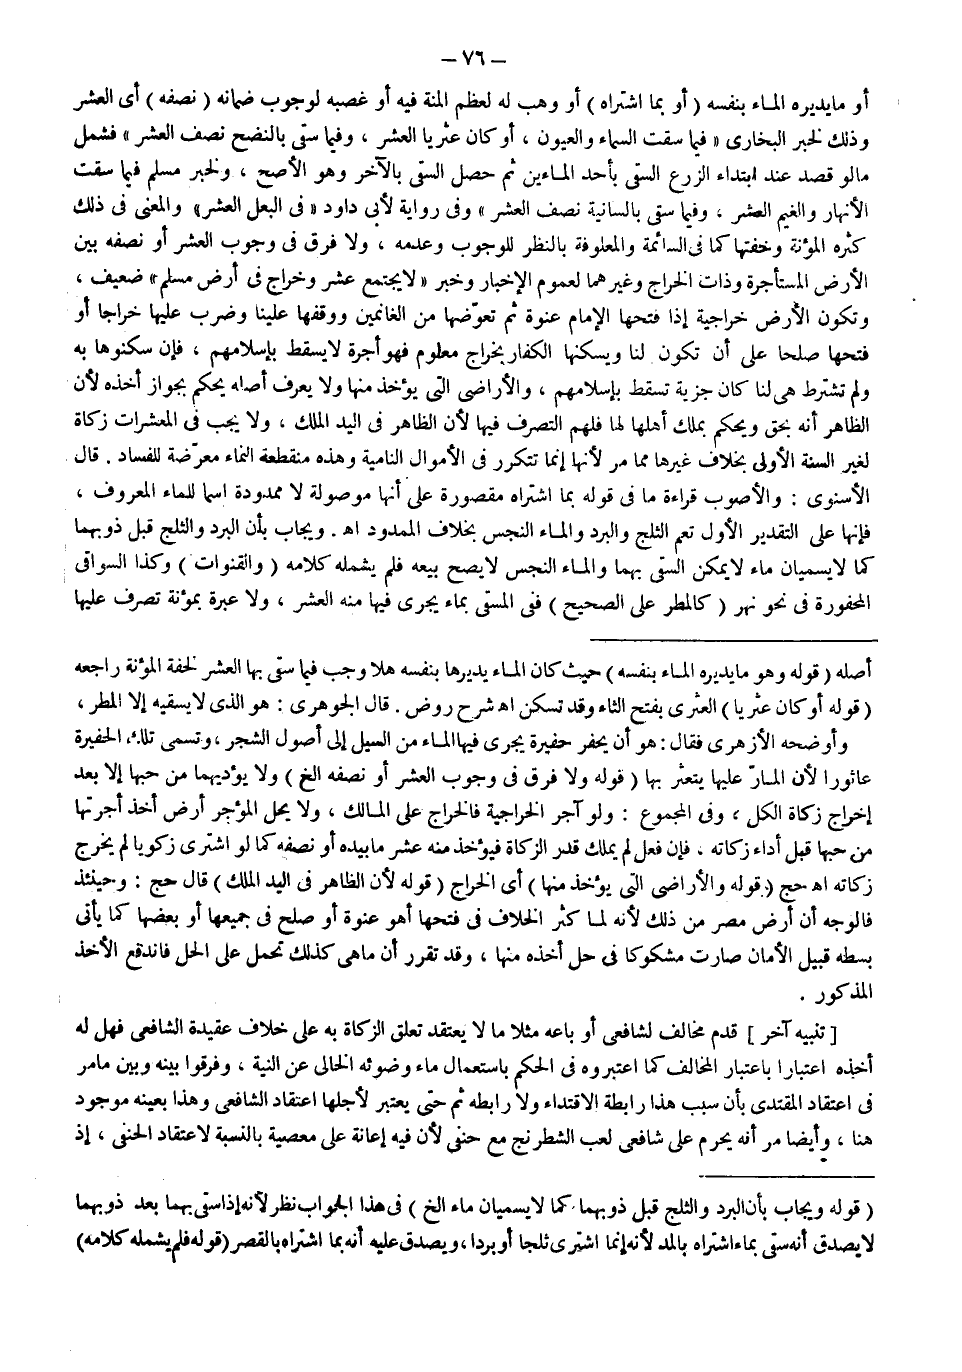 — ٧٦ —
أو مايديره الماء بنفسه ( أو بما اشتراه ) أو وهب له لعظم المنة فيه أو غصبه لوجوب ضمانه ( نصفه ) أى العشر
وذلك لخبر البخارى « فيما سقت السماء والعيون ، أو كان عثريا العشر ، وفيما سقى بالنضح نصف العشر » فشمل
مالو قصد عند ابتداء الزرع السقى بأحد الماءين ثم حصل السقى بالآخر وهو الأصح ، ولخبر مسلم فيما سقت
الأنهار والغيم العشر ، وفيما سقى بالسانية نصف العشر » وفى رواية لأبى داود « فى البعل العشر » والمعنى فى ذلك
كثرة المؤنة وخفتها كما فى السائمة والمعلوفة بالنظر للوجوب وعدمه ، ولا فرق فى وجوب العشر أو نصفه بين
الأرض المستأجرة وذات الخراج وغيرهما لعموم الإخبار وخبر « لايجتمع عشر وخراج فى أرض مسلم » ضعيف ،
وتكون الأرض خراجية إذا فتحها الإمام عنوة ثم تعوّضها من الغانمين ووقفها علينا وضرب عليها خراجا أو
فتحها صلحا على أن تكون لنا ويسكنها الكفار بخراج معلوم فهو أجرة لايسقط بإسلامهم ، فإن سكنوها به
ولم تشترط هى لنا كان جزية تسقط بإسلامهم ، والأراضى التى يؤخذ منها ولا يعرف أصله يحكم بجواز أخذه لأن
الظاهر أنه بحق ويحكم بملك أهلها لها فلهم التصرف فيها لأن الظاهر فى اليد الملك ، ولا يجب فى المعشرات زكاة
لغير السنة الأولى بخلاف غيرها مما مر لأنها إنما تتكرر فى الأموال النامية وهذه منقطعة النماء معرّضة للفساد . قال
الأسنوى : والأصوب قراءة ما فى قوله بما اشتراه مقصورة على أنها موصولة لا ممدودة اسما للماء المعروف ،
فإنها على التقدير الأول تعم الثلج والبرد والماء النجس بخلاف الممدود اه . ويجاب بأن البرد والثلج قبل ذوبهما
كما لايسميان ماء لايمكن السقى بهما والماء النجس لايصح بيعه فلم يشمله كلامه ( والقنوات ) وكذا السواقى
المحفورة فى نحو نهر ( كالمطر على الصحيح ) ففى المسقى بماء يجرى فيها منه العشر ، ولا عبرة بمؤنة تصرف عليها
أصله ( قوله وهو مايديره الماء بنفسه ) حيث كان الماء يديرها بنفسه هلا وجب فيما سقى بها العشر لخفة المؤنة راجعه
( قوله أو كان عثريا ) العثرى بفتح الثاء وقد تسكن اه شرح روض . قال الجوهرى : هو الذى لايسقيه إلا المطر ،
وأوضحه الأزهرى فقال : هو أن يحفر حفيرة يجرى فيها الماء من السيل إلى أصول الشجر ، وتسمى تلك الحفيرة
عاثورا لأن المارّ عليها يتعثر بها ( قوله ولا فرق فى وجوب العشر أو نصفه الخ ) ولا يؤديهما من حبها إلا بعد
إخراج زكاة الكل ، وفى المجموع : ولو آجر الخراجية فالخراج على المالك ، ولا يحل لمؤجر أرض أخذ أجرتها
من حبها قبل أداء زكاته ، فإن فعل لم يملك قدر الزكاة فيؤخذ منه عشر مابيده أو نصفه كما لو اشترى زكويا لم يخرج
زكاته اه حج ( قوله والأراضى التى يؤخذ منها ) أى الخراج ( قوله لأن الظاهر فى اليد الملك ) قال حج : وحينئذ
فالوجه أن أرض مصر من ذلك لأنه لما كثر الخلاف فى فتحها أهو عنوة أو صلح فى جميعها أو بعضها كما يأتى
بسطه قبيل الأمان صارت مشكوكا فى حل أخذه منها ، وقد تقرر أن ماهى كذلك تحمل على الحل فاندفع الأخذ
المذكور .
[ تنبيه آخر ] قدم مخالف لشافعى أو باعه مثلا ما لا يعتقد تعلق الزكاة به على خلاف عقيدة الشافعى فهل له
أخذه اعتبارا باعتبار المخالف كما اعتبروه فى الحكم باستعمال ماء وضوئه الخالى عن النية ، وفرقوا بينه وبين مامر
فى اعتقاد المقتدى بأن سبب هذا رابطة الاقتداء ولا رابطه ثم حتى يعتبر لأجلها اعتقاد الشافعى وهذا بعينه موجود
هنا ، وأيضا مر أنه يحرم على شافعى لعب الشطرنج مع حنفى لأن فيه إعانة على معصية بالنسبة لاعتقاد الحنفى ، إذ
( قوله ويجاب بأن البرد والثلج قبل ذوبهما كما لايسميان ماء الخ ) فى هذا الجواب نظر لأنه إذا سقى بهما بعد ذوبهما
لايصدق أنه سقى بماء اشتراه بالمد لأنه إنما اشترى ثلجا أو بردا ، ويصدق عليه أنه بما اشتراه بالقصر ( قوله فلم يشمله كلامه )